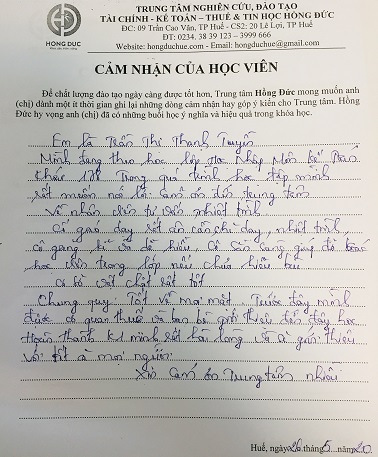 TRUNG TÂM NGHIÊN CỨU, ĐÀO TẠO
TÀI CHÍNH - KẾ TOÁN – THUẾ & TIN HỌC HỒNG ĐỨC
ĐC: 09 Trần Cao Vân, TP Huế - CS2: 20 Lê Lợi, TP Huế
ĐT: 0234. 38 39 123 – 3999 666
Website: hongduchue.com - Email: hongduchue@gmail.com
HONG DUC
CẢM NHẬN CỦA HỌC VIÊN
Để chất lượng đào tạo ngày càng được tốt hơn, Trung tâm Hồng Đức mong muốn anh
(chị) dành một ít thời gian ghi lại những dòng cảm nhận hay góp ý kiến cho Trung tâm. Hồng
Đức hy vọng anh (chị) đã có những buổi học ý nghĩa và hiệu quả trong khóa học.
Em là Trần Thị Thanh Tuyền
Mình đang theo học lớp Học Nhập Môn Kế Toán
Khóa 178 Trong quá trình học tập mình
rất muốn nói lời cảm ơn đến trung tâm
Về nhân viên tư vấn nhiệt tình
Cô giáo dạy rất ân cần chỉ dạy, nhiệt tình,
cô giảng kĩ và dễ hiểu. Cô sẵn sàng giúp đỡ
học viên trong lớp nếu chưa hiểu bài
Cơ sở vật chất rất tốt
Chung quy: Tốt về mọi mặt. Trước đây mình
được cơ quan thuế và bạn bè giới thiệu đến đây học
Hoàn thành K1 mình rất hài lòng và sẽ giới thiệu
với tất cả mọi người.
Xin cảm ơn Trung tâm nhiều
Huế, ngày 26 tháng 5 năm 20